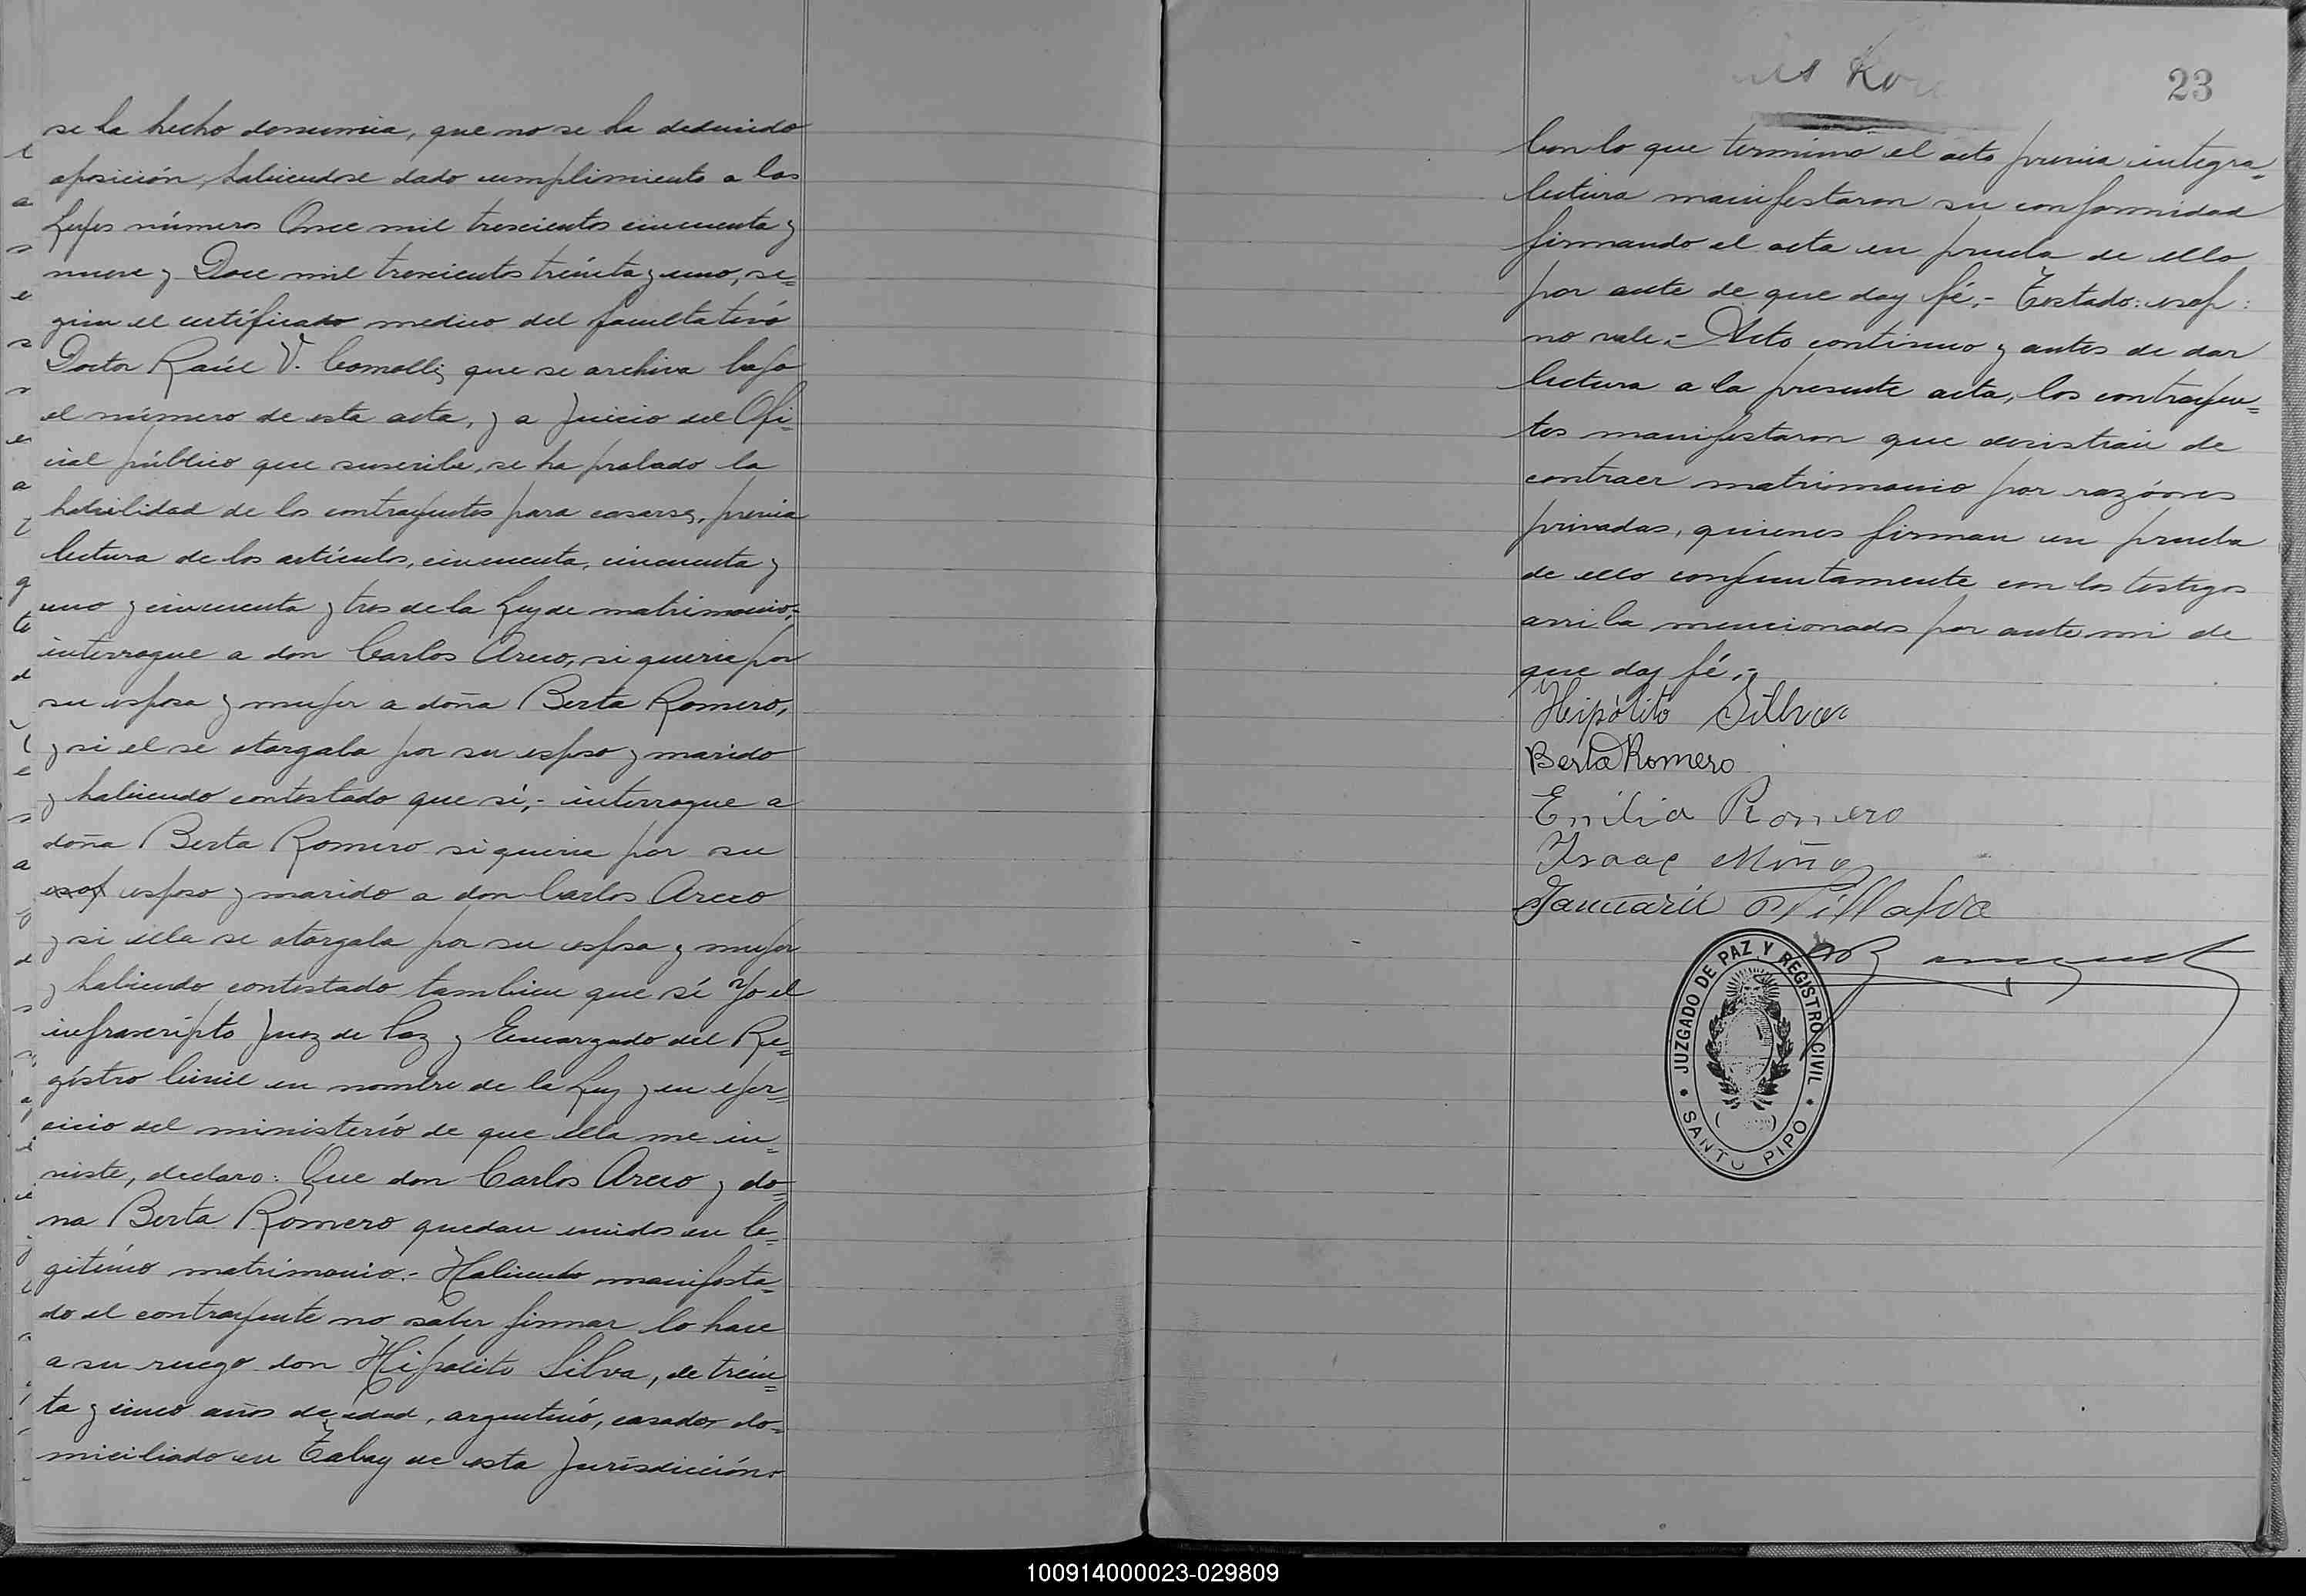 se ha hecho denuncia, que no se ha deducido
oposición, habiendose dado cumplimiento a las
Leyes número Once mil trescientos cincuenta y
nueve y Doce mil trescientos treinta y uno, se=
gún el certificado medico del facultativo
Doctor Raúl V. Comolli, que se archiva bajo
el número de esta acta, y a Juicio del Ofi=
cial público que suscribe, se ha probado la
habilidad de los contrayentes para casarse, previa
lectura de los artículos, cincuenta, cincuenta y
uno y cincuenta y tres de la Ley de matrimonio,=
interrogue a don Carlos Areco, si queria por
su esposa y mujer a doña Berta Romero,
y si el se otorgaba por su esposo y marido
y habiendo contestado que sí,- interrogue a
doña Berta Romero si queria por su
esof esposo y marido a don Carlos Areco
y si ella se otorgaba por su esposa y mujer
y habiendo contestado tambien que sí Yo el
infrascripto Juez de Paz y Encargado del Re=
gistro Civil en nombre de la Ley y en ejer=
cicio del ministerio de que ella me in=
viste, declaro: Que don Carlos Areco y do=
na Berta Romero quedan unidos en le=
gitimo matrimonio.- Habiendo manifesta=
do el contrayente no saber firmar lo hace
a su ruego don Hipolito Silva, de trein=
ta y cinco años de edad, argentino, casado, do=
miciliado en Tabay de esta Jurisdicción.
23
Con lo que terminó el acto previa integra=
lectura manifestaron su conformidad
firmando el acta en prueba de ello
por ante de que doy fé.- Testado: esof:
no vale.- Acto continuo y antes de dar
lectura a la presente acta, los contrayen=
tes manifestaron que desistian de
contraer matrimonio por razónes
privadas, quienes firman en prueba
de ello conjuntamente con los testigos
arriba mencionados por ante mi de
que doy fé.-
Heipólito Sillva
Berta Romero
Emilia Romero
Isaac Miño
Januario Villalva
JUZGADO DE PAZ Y REGISTRO CIVIL
SANTO PIPO
100914000023-029809